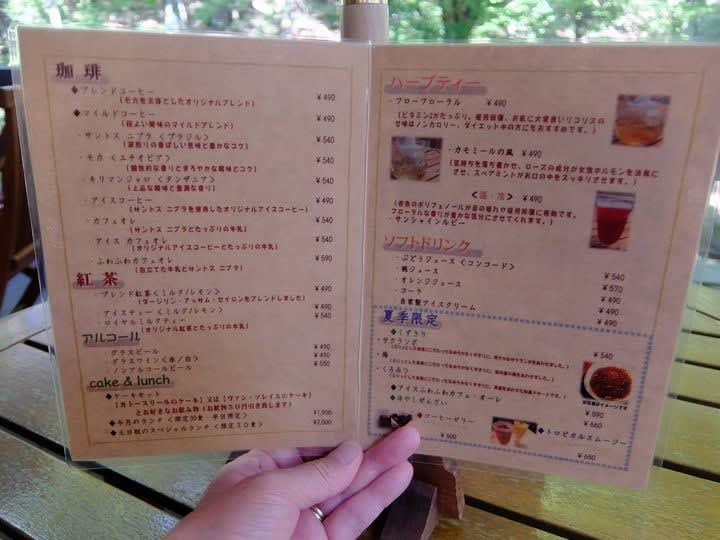 珈琲
◆ブレンドコーヒー ¥490
(モカを主体としたオリジナルブレンド)
◆マイルドコーヒー ¥490
(程よい酸味のマイルドブレンド)
・サントス ニブラ <ブラジル> ¥540
(深煎りの香ばしい苦味と豊かなコク)
・モカ <エチオピア> ¥540
(個性的な香りとまろやかな酸味とコク)
・キリマンジャロ <タンザニア> ¥540
(上品な酸味と豊潤な香り)
・アイスコーヒー ¥490
(サントス ニブラを使用したオリジナルアイスコーヒー)
・カフェオレ ¥540
(サントス ニブラとたっぷりの牛乳)
・アイス カフェオレ ¥540
(オリジナルアイスコーヒーとたっぷりの牛乳)
・ふわふわカフェオレ ¥590
(泡立てた牛乳とサントス ニブラ)
紅茶
・ブレンド紅茶<ミルク/レモン> ¥490
(ダージリン・アッサム・セイロンをブレンドしました)
・アイスティー<ミルク/レモン> ¥490
・ロイヤルミルクティー ¥540
(オリジナル紅茶とたっぷりの牛乳)
アルコール
・グラスビール ¥490
・グラスワイン<赤/白> ¥490
・ノンアルコールビール ¥550
cake & lunch
◆ケーキセット
とお好きなお飲み物(お飲物５０円引き致します)
◆今月のランチ <限定10食 平日限定> ¥1,900
◆土日祝のスペシャルランチ <限定１０食> ¥2,000
ハーブティー
・フローフローラル ¥490
甘味はノンカロリー、ダイエット中の方にもおすすめです。)
・カモミールの風 ¥490
<温・冷> ¥490
フローラルな香りが豊かな気分にさせてくれます。)
・サンシャインルビー
ソフトドリンク
・ぶどうジュース <コンコード>
・桃ジュース ¥540
・オレンジジュース ¥570
・コーラ ¥490
・自家製アイスクリーム ¥490
¥490
夏季限定
◆くずきり
・サクランボ ¥540
・梅
・くろみつ
◆アイスふわふわカフェ・オーレ ¥590
◆冷やしぜんざい ¥660
◆コーヒーゼリー ¥600
◆トロピカルスムージー ¥650